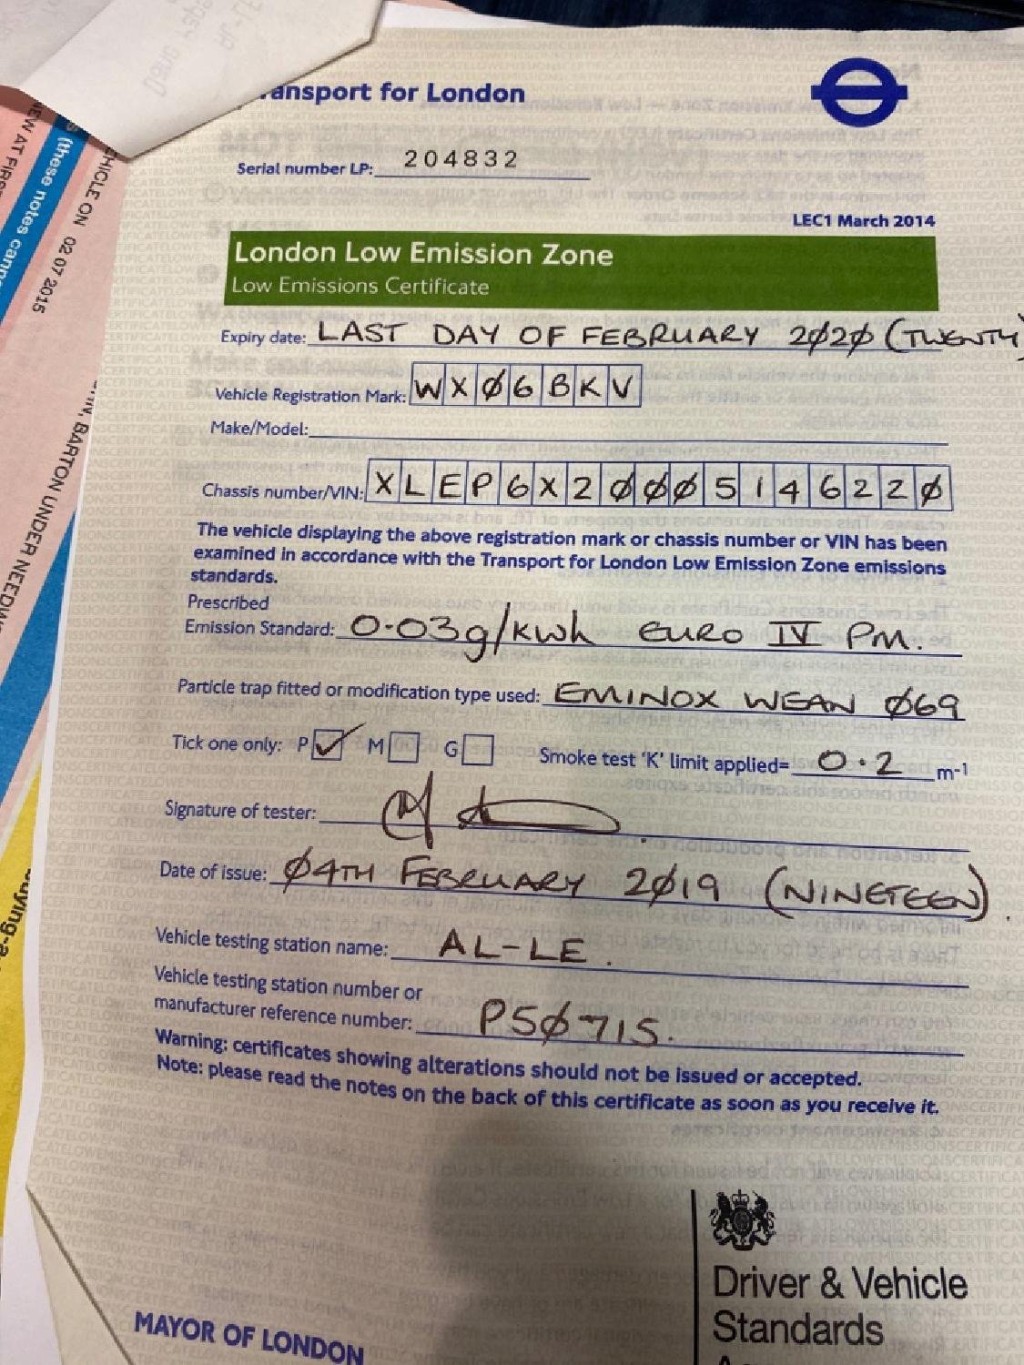 ansport for London
Serial number LP: 204832
LEC1 March 2014
London Low Emission Zone
Low Emissions Certificate
Expiry date: LAST DAY OF FEBRUARY 2020 (TWENTY)
Vehicle Registration Mark: WX06BKV
Make/Model:
Chassis number/VIN: XLEP6X20005146220
The vehicle displaying the above registration mark or chassis number or VIN has been
examined in accordance with the Transport for London Low Emission Zone emissions
standards.
Prescribed
Emission Standard: 0.03g/kwh EURO IV PM.
Particle trap fitted or modification type used: EMINOX WEAN 069
Tick one only: P ✓ M G Smoke test 'K' limit applied= 0.2 m-1
Signature of tester:
Date of issue: 04TH FEBRUARY 2019 (NINETEEN).
Vehicle testing station name: AL-LE.
Vehicle testing station number or
manufacturer reference number: P50715.
Warning: certificates showing alterations should not be issued or accepted.
Note: please read the notes on the back of this certificate as soon as you receive it.
Driver & Vehicle
Standards
MAYOR OF LONDON
(these notes
EHICLE ON 02 07 2015
BARTON UNDER NEEDW
EW AT FIRS
uying-a